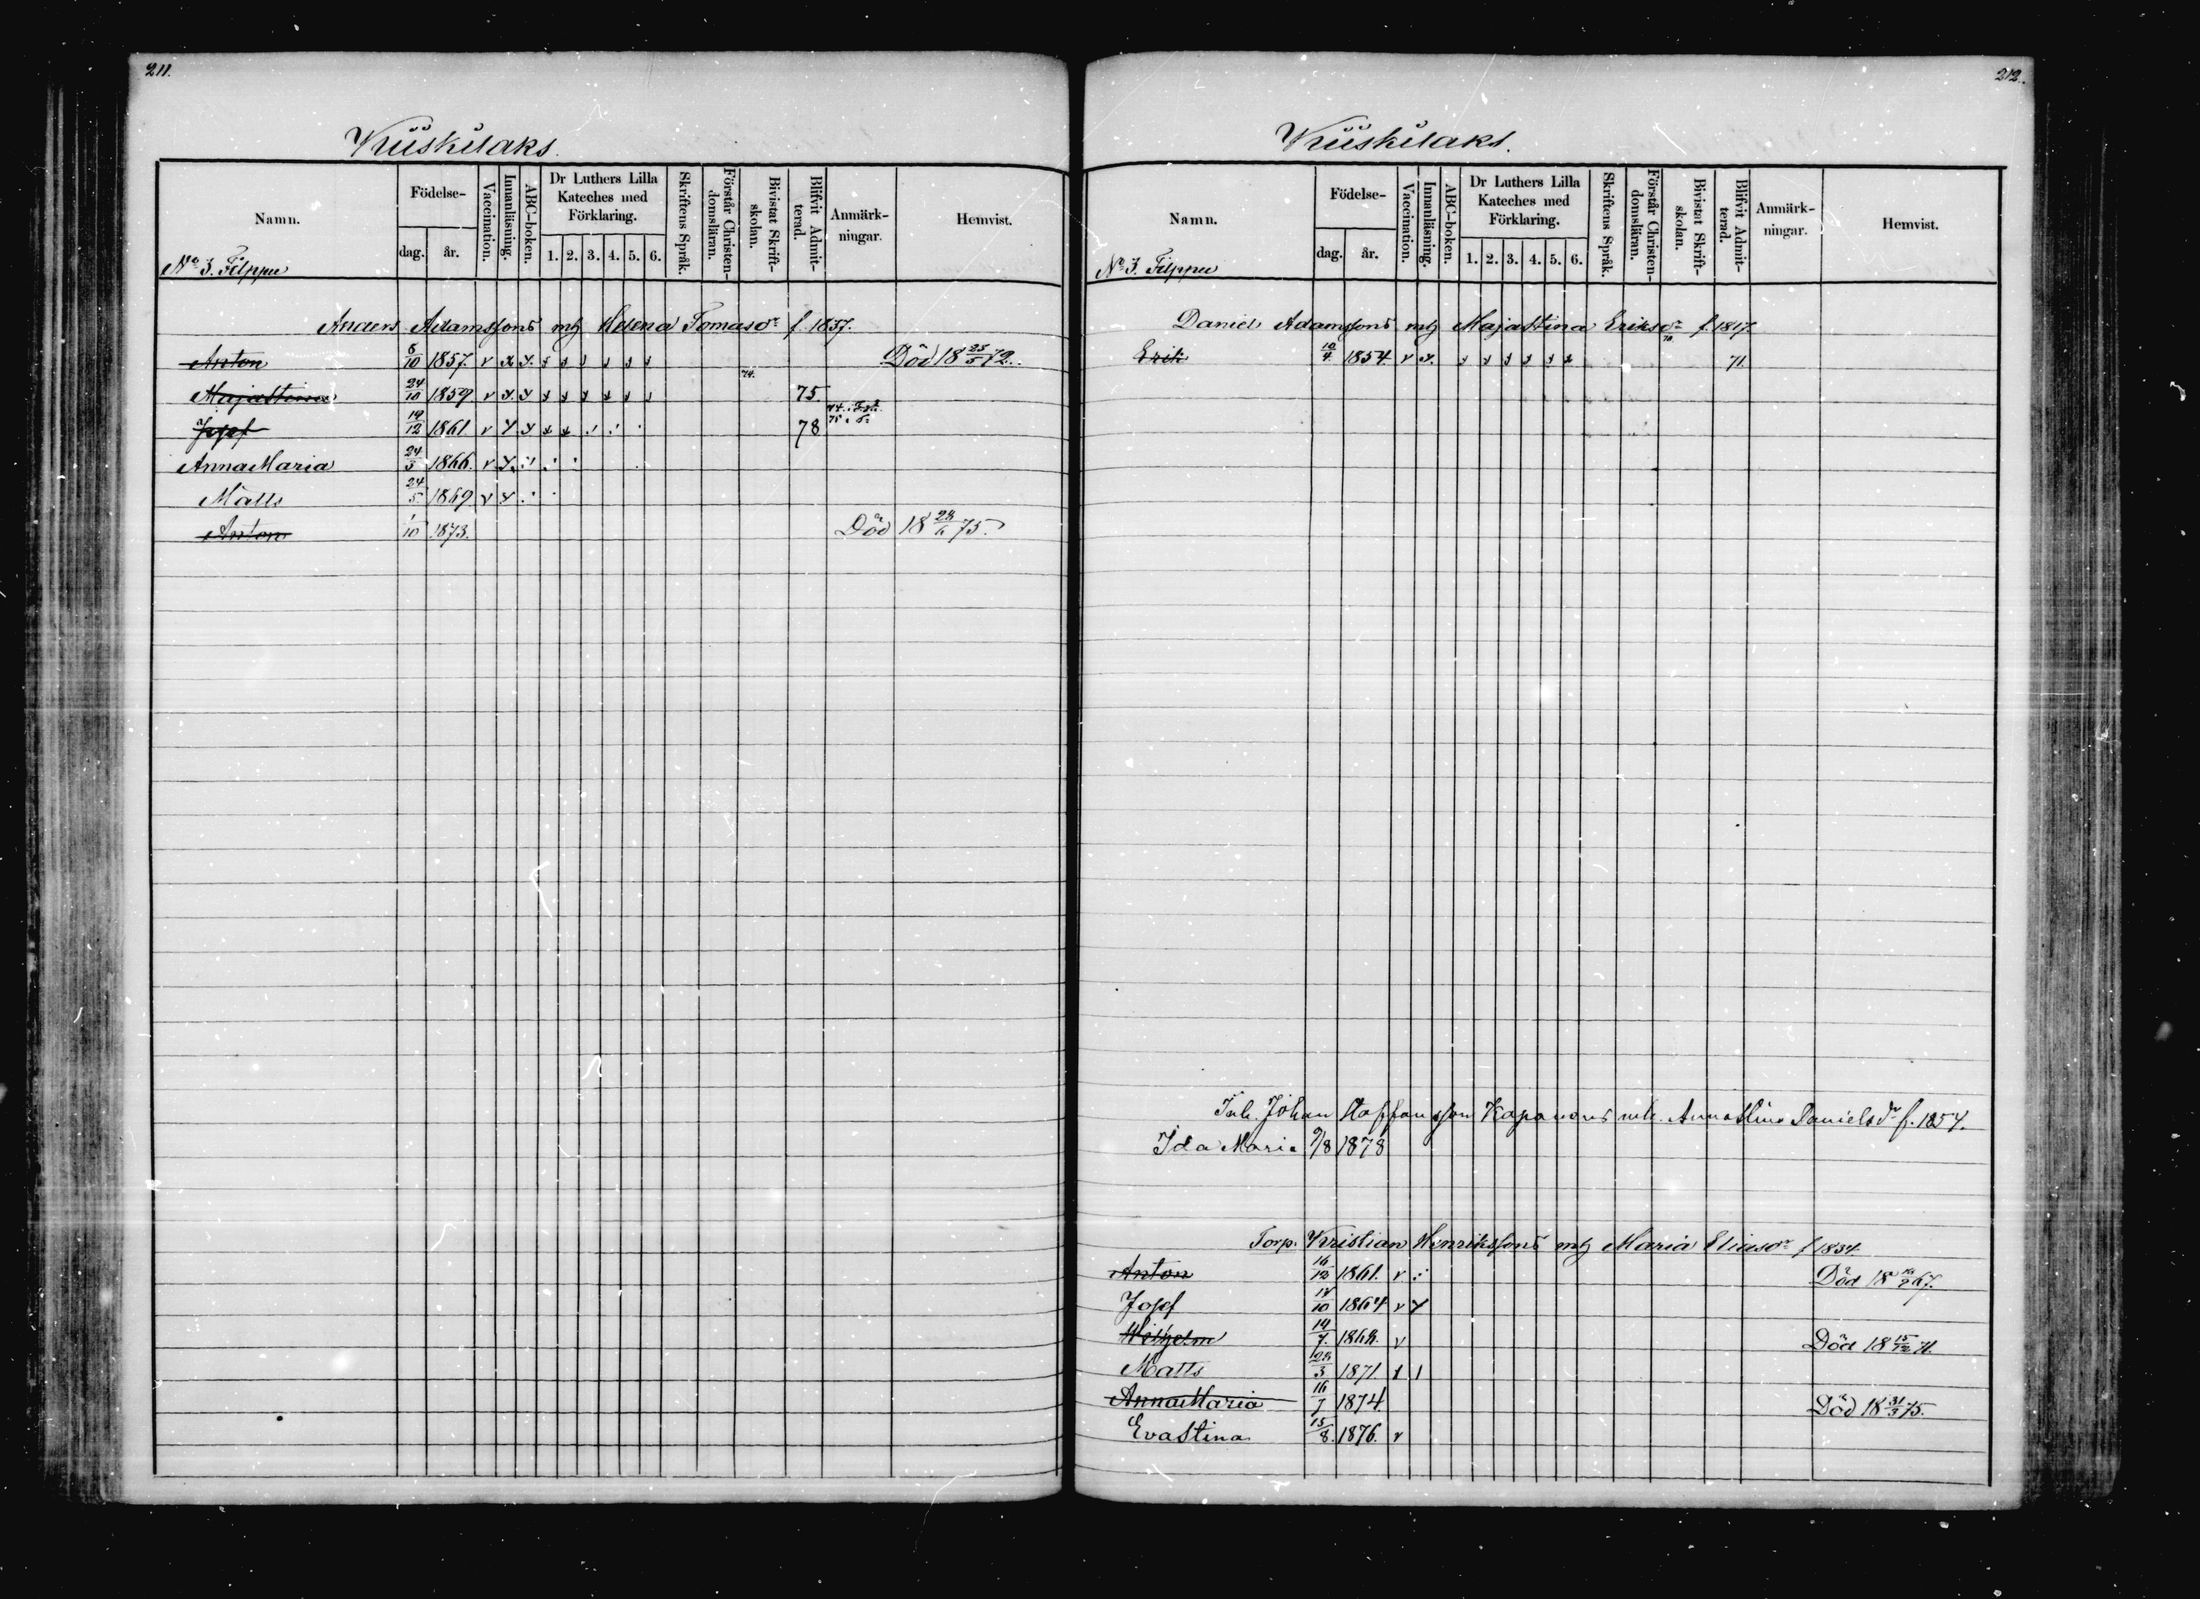 211.
Kiiskilaks.
Namn.
Födelse-
dag.
år.
Vaccination.
Innanläsning.
ABC-boken.
Dr Luthers Lilla Kateches med Förklaring.
1. 2. 3. 4. 5. 6.
Skriftens Språk.
Förstår Christen-domsläran.
Bivistat Skrift-skolan.
Blifvit Admit-terad.
Anmärk-ningar.
Hemvist.
No 3. Filppu
Anders Adamssons mh Helena Tomasdr f. 1837.
Anton 8/10 1857. Död 18 25/5 72.
Majastina 24/10 1859 74. 75.
Josef 19/12 1861. 78
Anna Maria 24/3 1866.
Matts 24/5 1869
Anton 1/10 1873. Död 18 28/6 75.
212.
Kiiskilaks.
Namn.
Födelse-
dag.
år.
Vaccination.
Innanläsning.
ABC-boken.
Dr Luthers Lilla Kateches med Förklaring.
1. 2. 3. 4. 5. 6.
Skriftens Språk.
Förstår Christen-domsläran.
Bivistat Skrift-skolan.
Blifvit Admit-terad.
Anmärk-ningar.
Hemvist.
No 3. Filppu
Daniel Adamssons mh Majastina Eriksdr f. 1817.
Erik 10/4 1854 70. 71.
Inh. Johan Staffansson Kaponens mh. Annastina Danielsdr f. 1854.
Ida Maria 9/8 1878
Torp. Kristian Henrikssons mh Maria Eliasdr f 1834
Anton 16/12 1861. Död 18 67.
Josef 18/10 1864
Wilhelm 14/7. 1868. Död 18 15/12 71.
Matts 28/3 1871.
Anna Maria 16/7 1874 Död 18 31/3 75.
Evastina 15/8. 1876.